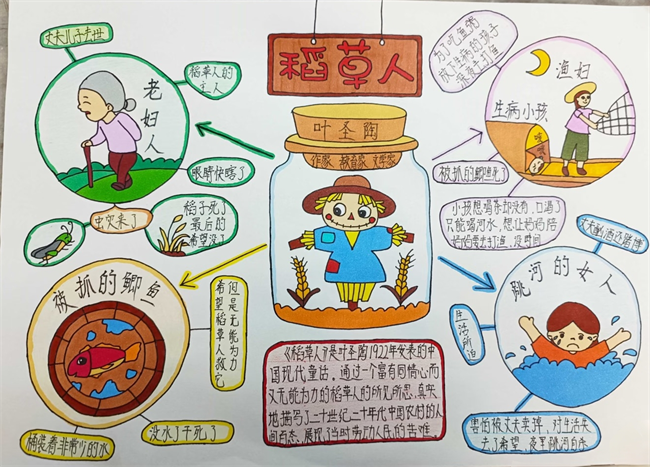 稻草人
叶圣陶
作家 教育家 文学家
丈夫儿子去世
稻草人的
主人
老妇人
眼睛快瞎了
虫灾来了
稻子死了
最后的
希望没了
为了吃鱼粥
放下生病的孩子
深夜去打鱼
渔妇
生病小孩
被抓的鲫鱼死了
小孩想喝茶却没有，口渴了
只能喝河水，想让妈妈陪
妈妈要去打渔，没时间
被抓的鲫鱼
但是无能为力
希望稻草人救它
没水了干死了
桶装着非常少的水
丈夫酗酒还赌博
跳河的女人
生活所迫
害怕被丈夫卖掉，对生活失
去了希望，夜里跳河自杀
《稻草人》是叶圣陶1922年发表的中
国现代童话。通过一个富有同情心而
又无能为力的稻草人的所见所思，真实
地描写了二十世纪二十年代中国农村的人
间百态，展现了当时劳动人民的苦难。